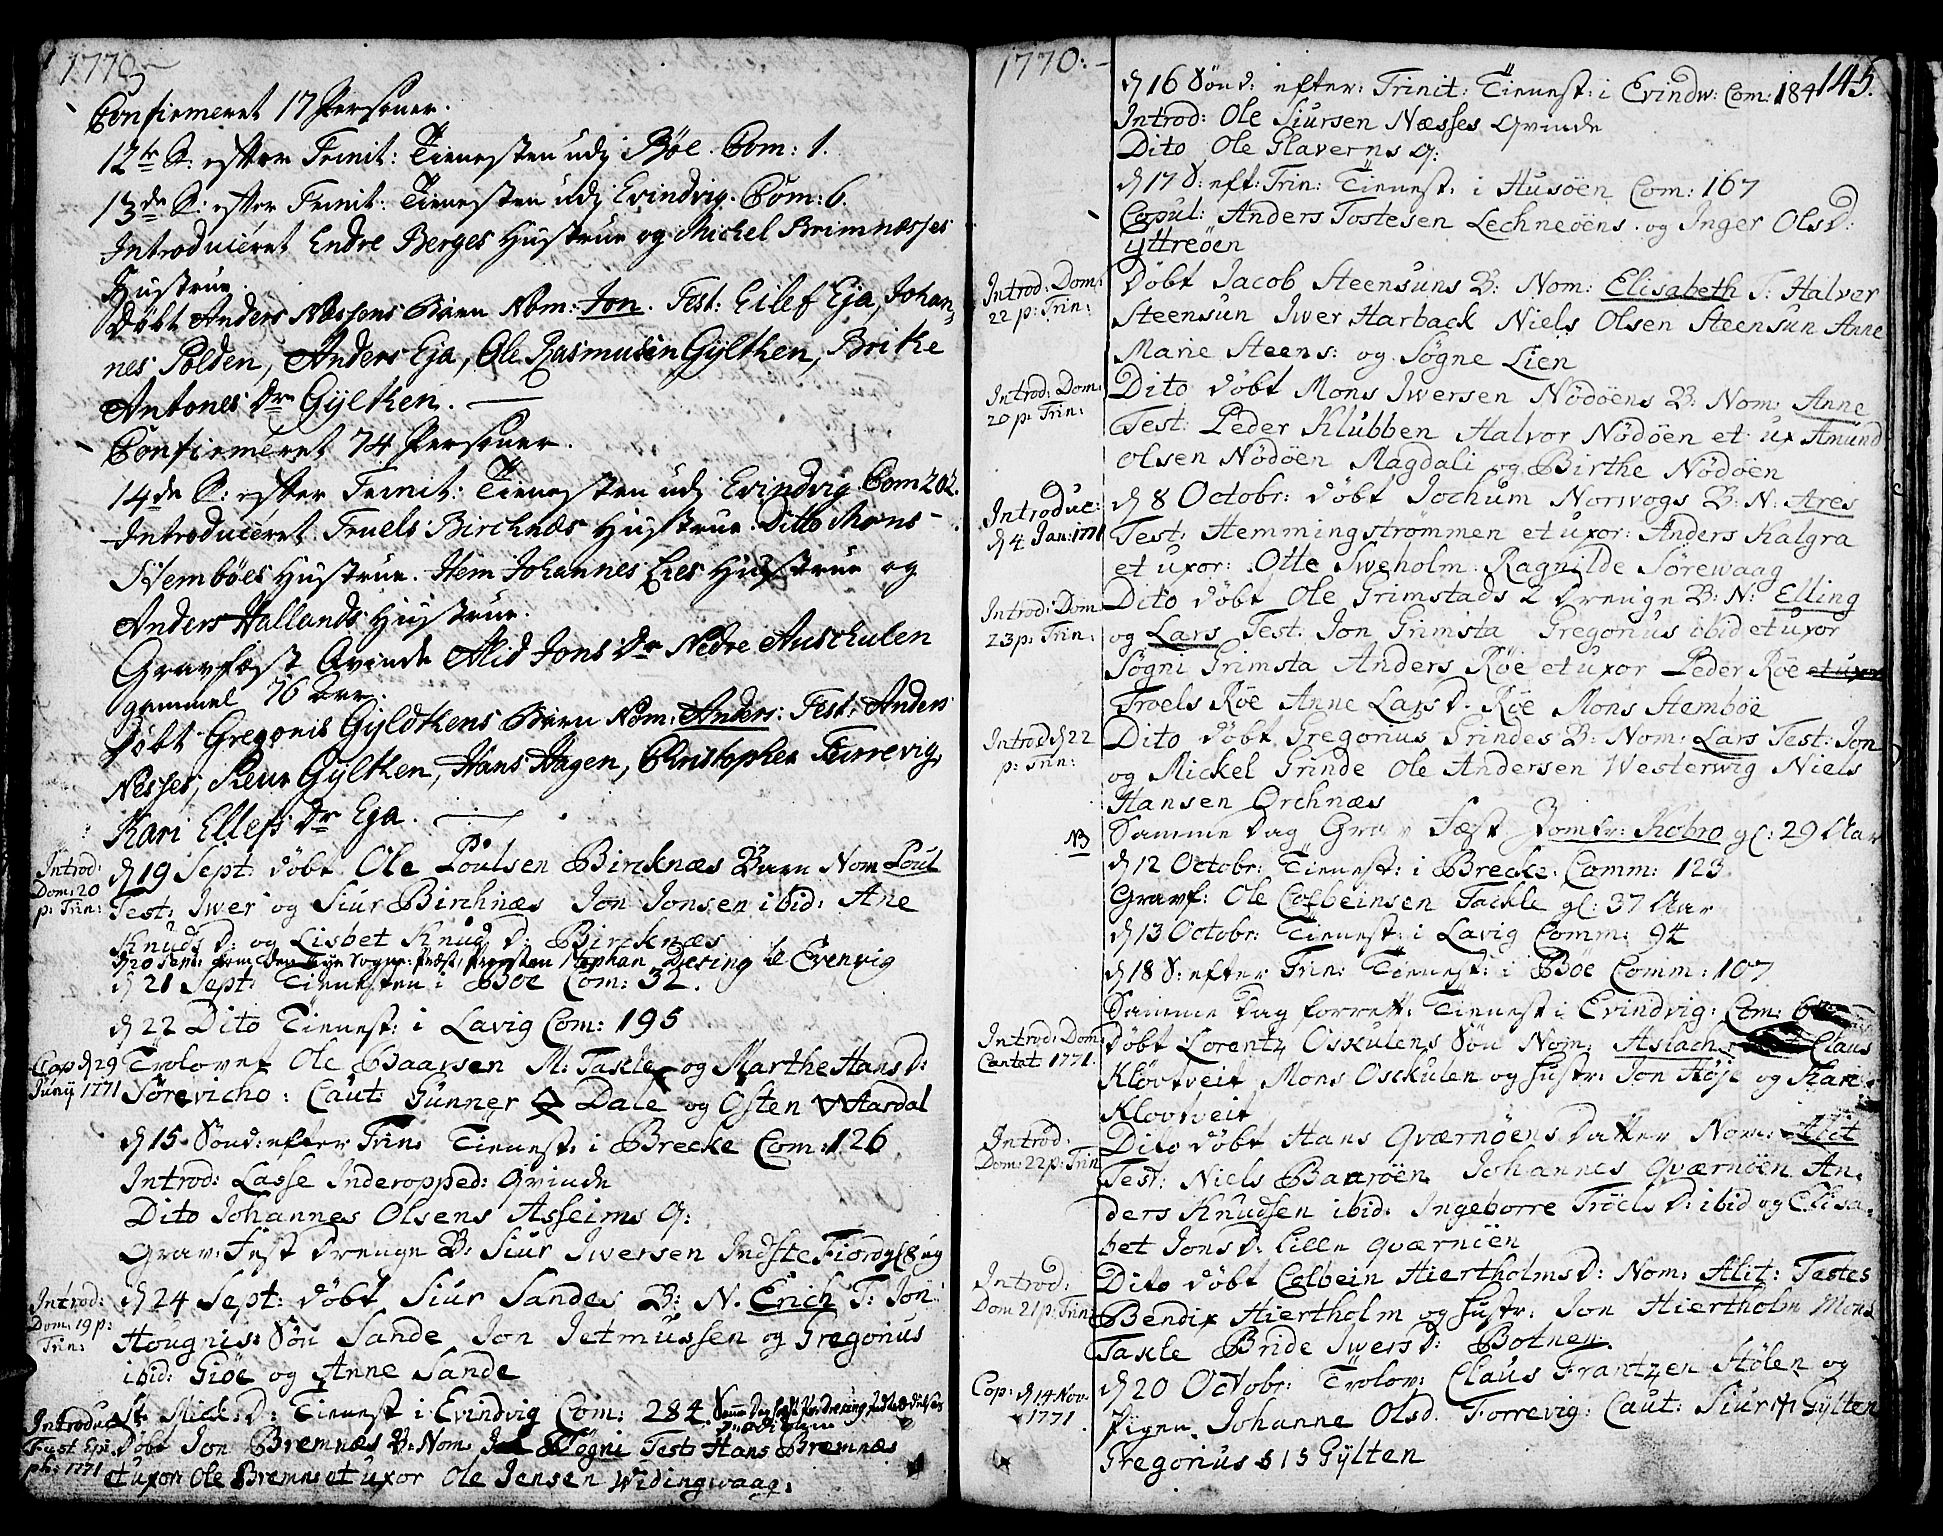 1770
Confirmeret 17 Personer.
12te S. efter Trinit: Tienesten udj Böe. Com: 1.
13de S. efter Trinit: Tienesten udj Evindvig. Com: 6.
Introduceret Endre Berges Hustrue og Mickel Brimnæsses
Hustrue.
Döbt Anders Næssens Barn Nom: Jon. Test: Eilef Eja, Johan-
nes Polden, Anders Eja, Ole Rasmusen Gÿltken, Brite
Antones Dr Gÿltken.
Confirmeret 74 Personer.
14de S. efter Trinit: Tienesten udj Evindvig Com 202.
Introduceret Truels Bircknæs Hustrue. Ditto Mons
Stemböes Hustrue. Item Johannes Eies Hustrue og
Anders Hallands Hustrue.
Gravfæst Qvinde Alid Jons Dr Nedre Auschulen
gammel 76 Aar.
Döbt Gregoris Gÿldtkens Barn Nom: Anders: Test: Anders
Nesses, Peur Gÿltken, Hans Hagen, Christopher Torrevig,
Kari Ellefs Dr Eja.
Introd: Dom: 20 p: Trin:
d 19 Sept: döbt Ole Poulsen Bircknæs Barn Nom Poul
Test: Iwer og Siur Birchnæs Jon Jonsen ibid: Ane
Knuds D: og Lisbet Knud D: Bircknæs
d 20 Sept: kom den nye Sogne Præst Stephan Dæsing til Evenvig
d 21 Sept: Tienesten i Böe Com: 32.
d 22 Dito Tienest: i Lavig Com: 195
Cop d 29 Junÿ 1771
Trolovet Ole Baarsen M: Takle og Marthe Hans D:
Sörevicho: Caut: Gunner Dale og Östen Wassdal
d 15 Sond: efter Trin: Tienest: i Brecke Com: 126
Introd: Lasse Inderopped: Qvinde
Dito Johannes Olsens Asheims Q:
Grav: Fest Drenge B: Siur Iwersen Indste Fiord gl 8 ug
Introd: Dom: 19 p: Trin:
d 24 Sept: döbt Siur Sandes B: N. Erich T: Jon
Hougnis: Sön Sande Jon Jetmussen og Gregorius
ibid: Giöe og Anne Sande
St Mick: D: Tienest i Evindvig Com: 284.
Introduc Fest Epi ph: 1771
Döbt Jon Bremnæs B: Nom Sögni Test: Hans Bremnæs
et uxor Ole Bremnes et uxor Ole Jensen Widingwaag:
1770:
145.
d 16 Sönd: efter: Trinit: Tienest: i Evindw: Com: 184
Introd: Ole Siursen Næsses Qvinde
Dito Ole Glaverns Q:
d 17 S: eft: Trin: Tienest: i Husöen Com: 167
Copul: Anders Tostesen Lechneöens og Inger Ols D:
Yttreöen
Introd: Dom: 22 p: Trin:
Döbt Jacob Steensuns B: Nom: Elisabeth T: Halver
Steensun Iwer Harback Niels Olsen Steensun Anne
Marie Steens: og Sögne Lien
Introd: Dom: 20 p: Trin:
Dito döbt Mons Iwersen Nödöens B: Nom: Anne
Test: Peder Klubben Halvor Nödöen et ux Amund
Olsen Nödöen Magdali og Birthe Nödöen
Introduc: d 4 Jan: 1771
d 8 Octobr: döbt Jochum Norvogs B: N: Ares
Test: Hemmingströmmen et uxor: Anders Kalgra
et uxor: Otte Sweholm Ragnilde Sörewaag
Introd: Dom 23 p: Trin:
Dito döbt Ole Grimstads 2 Drenge B: N: Elling
og Lars Test: Jon Grimsta Gregorius ibid et uxor
Sögni Grimsta Anders Röe et uxor Peder Röe et uxor
Troels Röe Anne Lars D. Röe Mons Stemböe
Introd d 22 p: Trin:
Dito döbt Gregorius Grindes B: Nom: Lars Test: Jon
og Mickel Grinde Ole Andersen Westerwig Niels
Hansen Orchnæs
NB
Samme Dag Grav Fæst Domfr: Kobro gl: 29 Aar
d 12 Octobr: Tienest: i Brecke. Comm: 123
Gravf: Ole Colbeinsen Tackle gl: 37 Aar
d 13 Octobr: Tienest: i Lavig Comm: 94
d 18 S: efter Trin: Tienest: i Böe Comm: 107
Samme Dag forrett: Tienest i Evindvig: Com: 6
Introd: Dom: Cantat 1771.
Döbt Lorentz Osculens Sön Nom: Aslach Claus
Klövtveit Mons Osckulen og Hustr: Jon Höje og Kari
Klovtveit
Introd: Dom: 22 p: Trin
Dito döbt Hans Qværnöens Datter Nom: Alit
Test: Niels Baaröen Johannes Qværnöen An-
ders Knudsen ibid: Ingeborre Tröels D: ibid og Elisa-
bet Jons D: Lille Qværniöen
Introd: Dom 21 p: Trin:
Dito döbt Colbein Hiertholms D: Nom: Alit: Testes
Bendix Hiertholm og Hustr: Jon Hiertholm Mons
Takle Bride Iwers D: Botnen.
Cop: d 14 Nov: 1771
d 20 Octobr: Trolov: Claus Frantzen Stölen og
Pigen Johanne Olsd. Torrevig: Caut: Siur Gÿlten
Gregorius Gÿlten